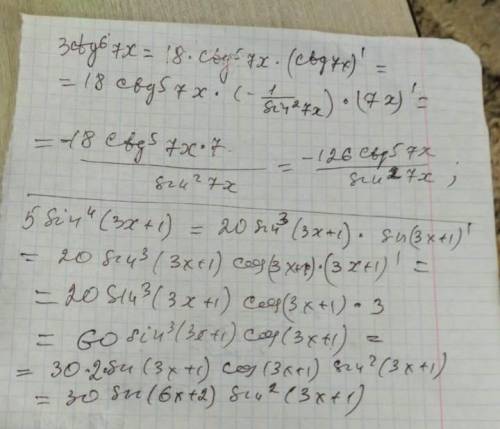 3ctg⁶7x = 18·ctg⁵7x·(ctg7x)' =
= 18 ctg⁵7x·(-1/sin²7x)·(7x)' =
= -18 ctg⁵7x·7/sin²7x = -126 ctg⁵7x/sin²7x ;
5 sin⁴(3x+1) = 20 sin³(3x+1)· sin(3x+1)'
= 20 sin³(3x+1) cos(3x+1)·(3x+1)' =
= 20 sin³(3x+1) cos(3x+1)·3
= 60 sin³(3x+1) cos(3x+1) =
= 30·2 sin(3x+1) cos(3x+1) sin²(3x+1)
= 30 sin(6x+2) sin²(3x+1)